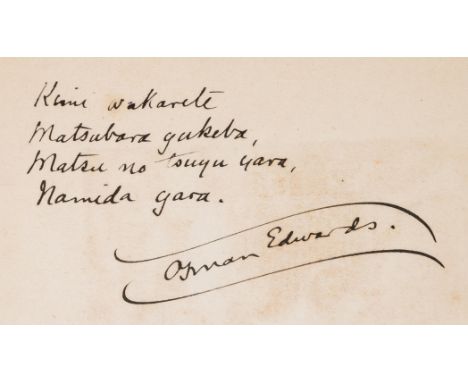 Kimi wakarete
Matsubara yukeba,
Matsu no tsuyu yara,
Namida yara.
Osman Edwards.